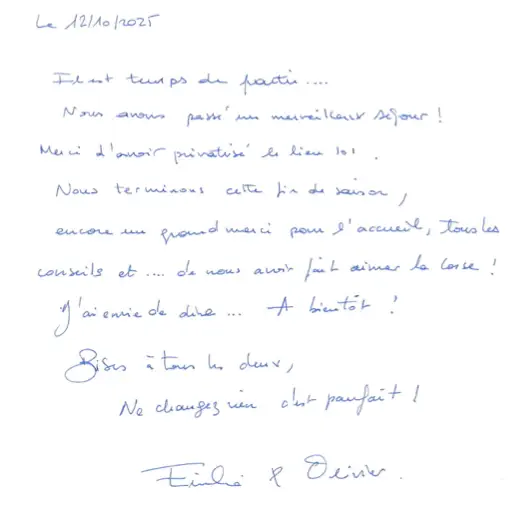 Le 12/10/2025
Il est temps de partir ....
Nous avons passé un merveilleux séjour !
Merci d'avoir privatisé le lieu lol.
Nous terminons cette fin de saison,
encore un grand merci pour l'accueil, tous les
conseils et .... de nous avoir fait aimer la Corse !
J'ai envie de dire ... A bientôt !
Bises à tous les deux,
Ne changez rien c'est parfait !
& Olivier.